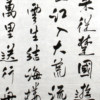 來從楚國遊
江入大荒流
雲生結海樓
萬里送行舟